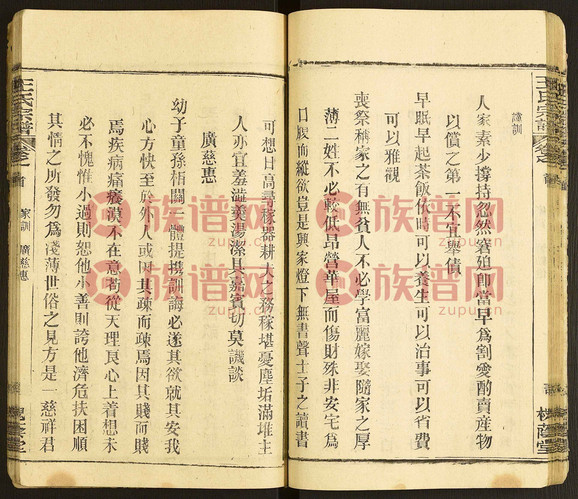 家訓
人家素少撐持忽然窘迫卽當早爲割愛酌賣產物
以償之第一不宜舉債
早眠早起茶飯依時可以養生可以治事可以省費
可以雅觀
喪祭稱家之有無貧人不必學富麗嫁娶隨家之厚
薄二姓不必較低昂營華屋而傷財殊非安宅爲
口腹而縱欲豈是興家燈下無書聲士子之讀書
可想日高尋稼器耕夫之務稼堪憂塵垢滿堆主
人亦宜羞澁羹湯潔具嘉賓切莫譏談
廣慈惠
幼子童孫栢關一體提攜訓誨必遂其欲就其安我
心方快至於外人或因其疎而疎焉因其賤而賤
焉疾病痛癢漠不在意苟從天理良心上着想未
必不愧惟小過則恕他小善則誇他濟危扶困順
其情之所發勿爲淺薄世俗之見方是一慈祥君
王氏宗譜
卷之首
家訓
廣慈惠
槐蔭堂
王氏宗譜
槐蔭堂
族谱网
zupu.cn
族谱网
zupu.cn
族谱网
zupu.cn
族谱网
zupu.cn